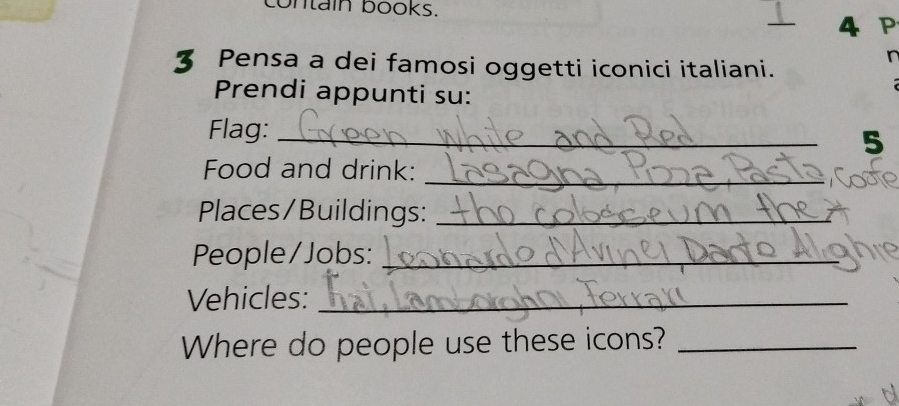 contain books.
1
4 P
3 Pensa a dei famosi oggetti iconici italiani.
Prendi appunti su:
Flag: Green white and Red
5
Food and drink: Lasagna, Pizze, Pasta, Coofe
Places/Buildings: the colosseum the
People/Jobs: Leonardo d'Avinci Dante Alighie
Vehicles: Fiat, Lamborghni, Ferrari
Where do people use these icons?